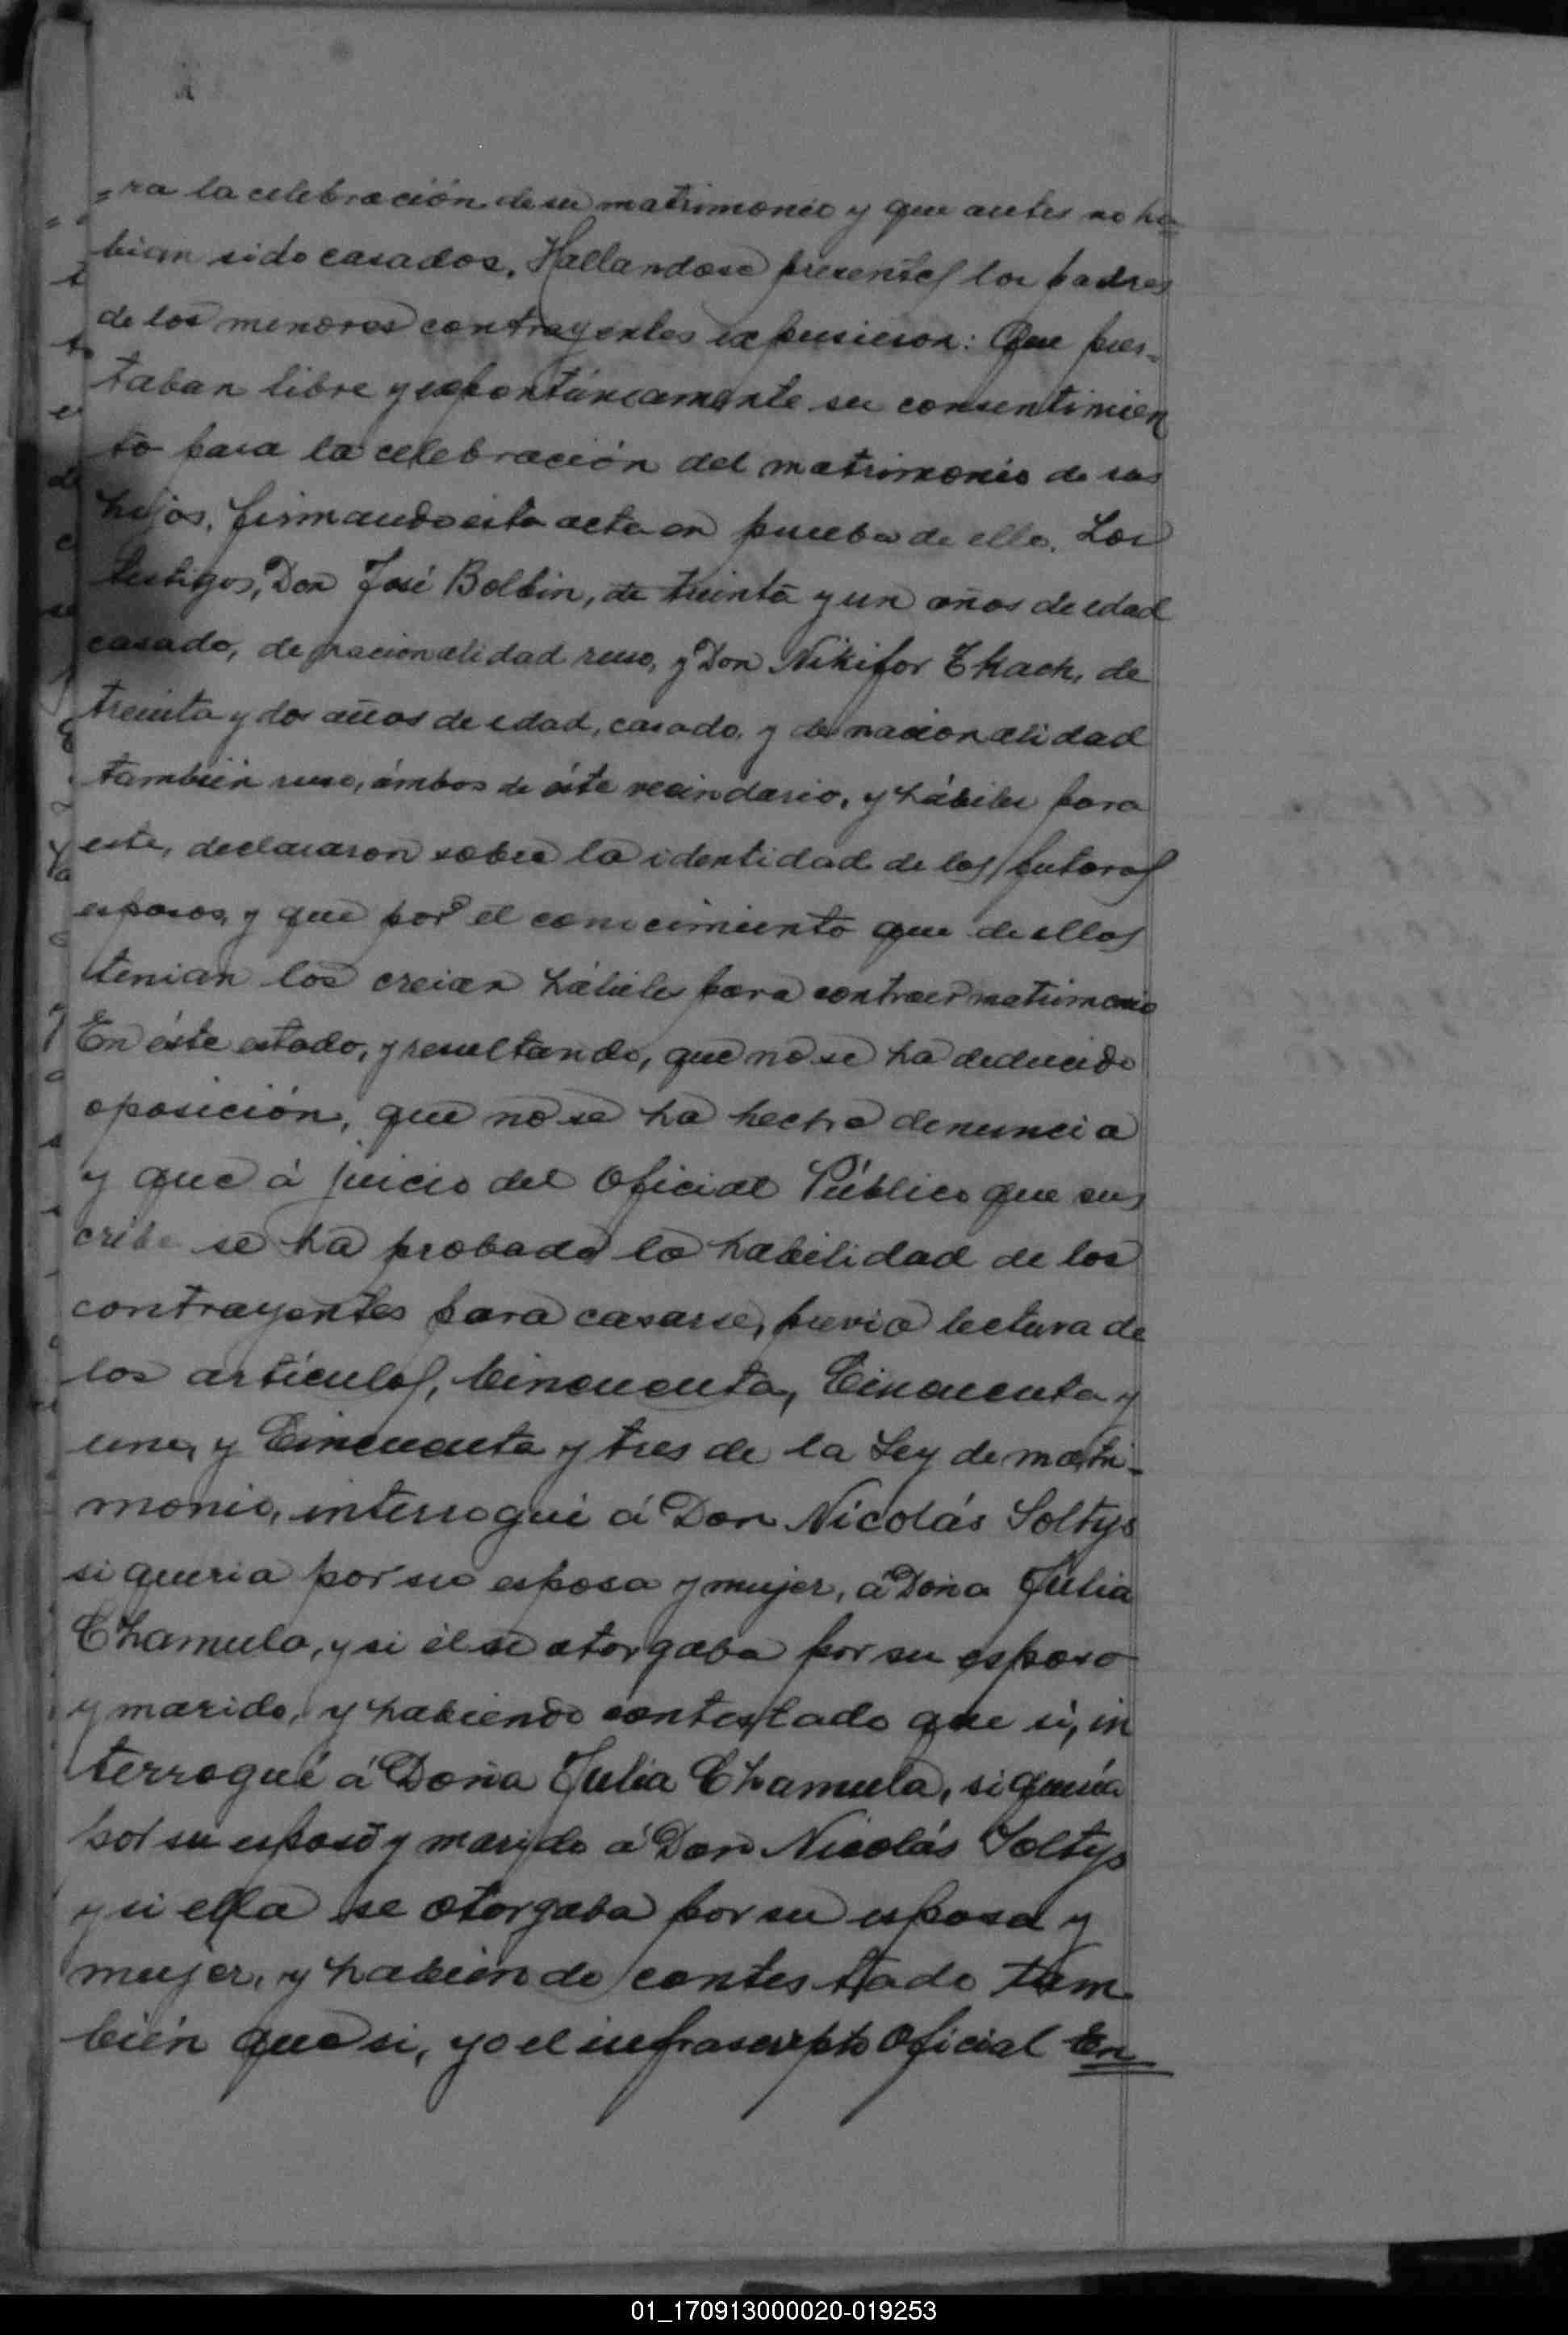 =ra la celebración de su matrimonio y que antes no ha=
bian sido casados. Hallandose presentes los padres
de los menores contrayentes expusieron: Que pres-
taban libre y espontáneamente su consentimien
to para la celebración del matrimonio de sus
hijos, firmando esta acta en prueba de ello. Los
testigos, Don José Bolbin, de treinta y un años de edad
casado, de nacionalidad ruso, y Don Nikifor Tkach, de
treinta y dos años de edad, casado, y de nacionalidad
también ruso, ámbos de éste vecindario, y hábiles para
este, declararon sobre la identidad de los futuros
esposos, y que por el conocimiento que de ellos
tenian los creian hábiles para contraer matrimonio
En éste estado, y resultando, que no se ha deducido
oposición, que no se ha hecho denuncia
y que á juicio del Oficial Público que sus
cribe se ha probado la habilidad de los
contrayentes para casarse, previa lectura de
los artículos, Cincuenta, Cincuenta y
uno, y Cincuenta y tres de la Ley de matri-
monio, interrogué á Don Nicolás Soltys
si queria por su esposa y mujer, á Doña Julia
Chamula, y si él se otorgaba por su esposo
y marido, y habiendo contestado que si, in
terrogué á Doña Julia Chamula, si quería
por su esposo y marido á Don Nicolás Soltys
y si ella se otorgaba por su esposa y
mujer, y habiendo contestado tam
bién que si, yo el infrascripto Oficial En
01_170913000020-019253